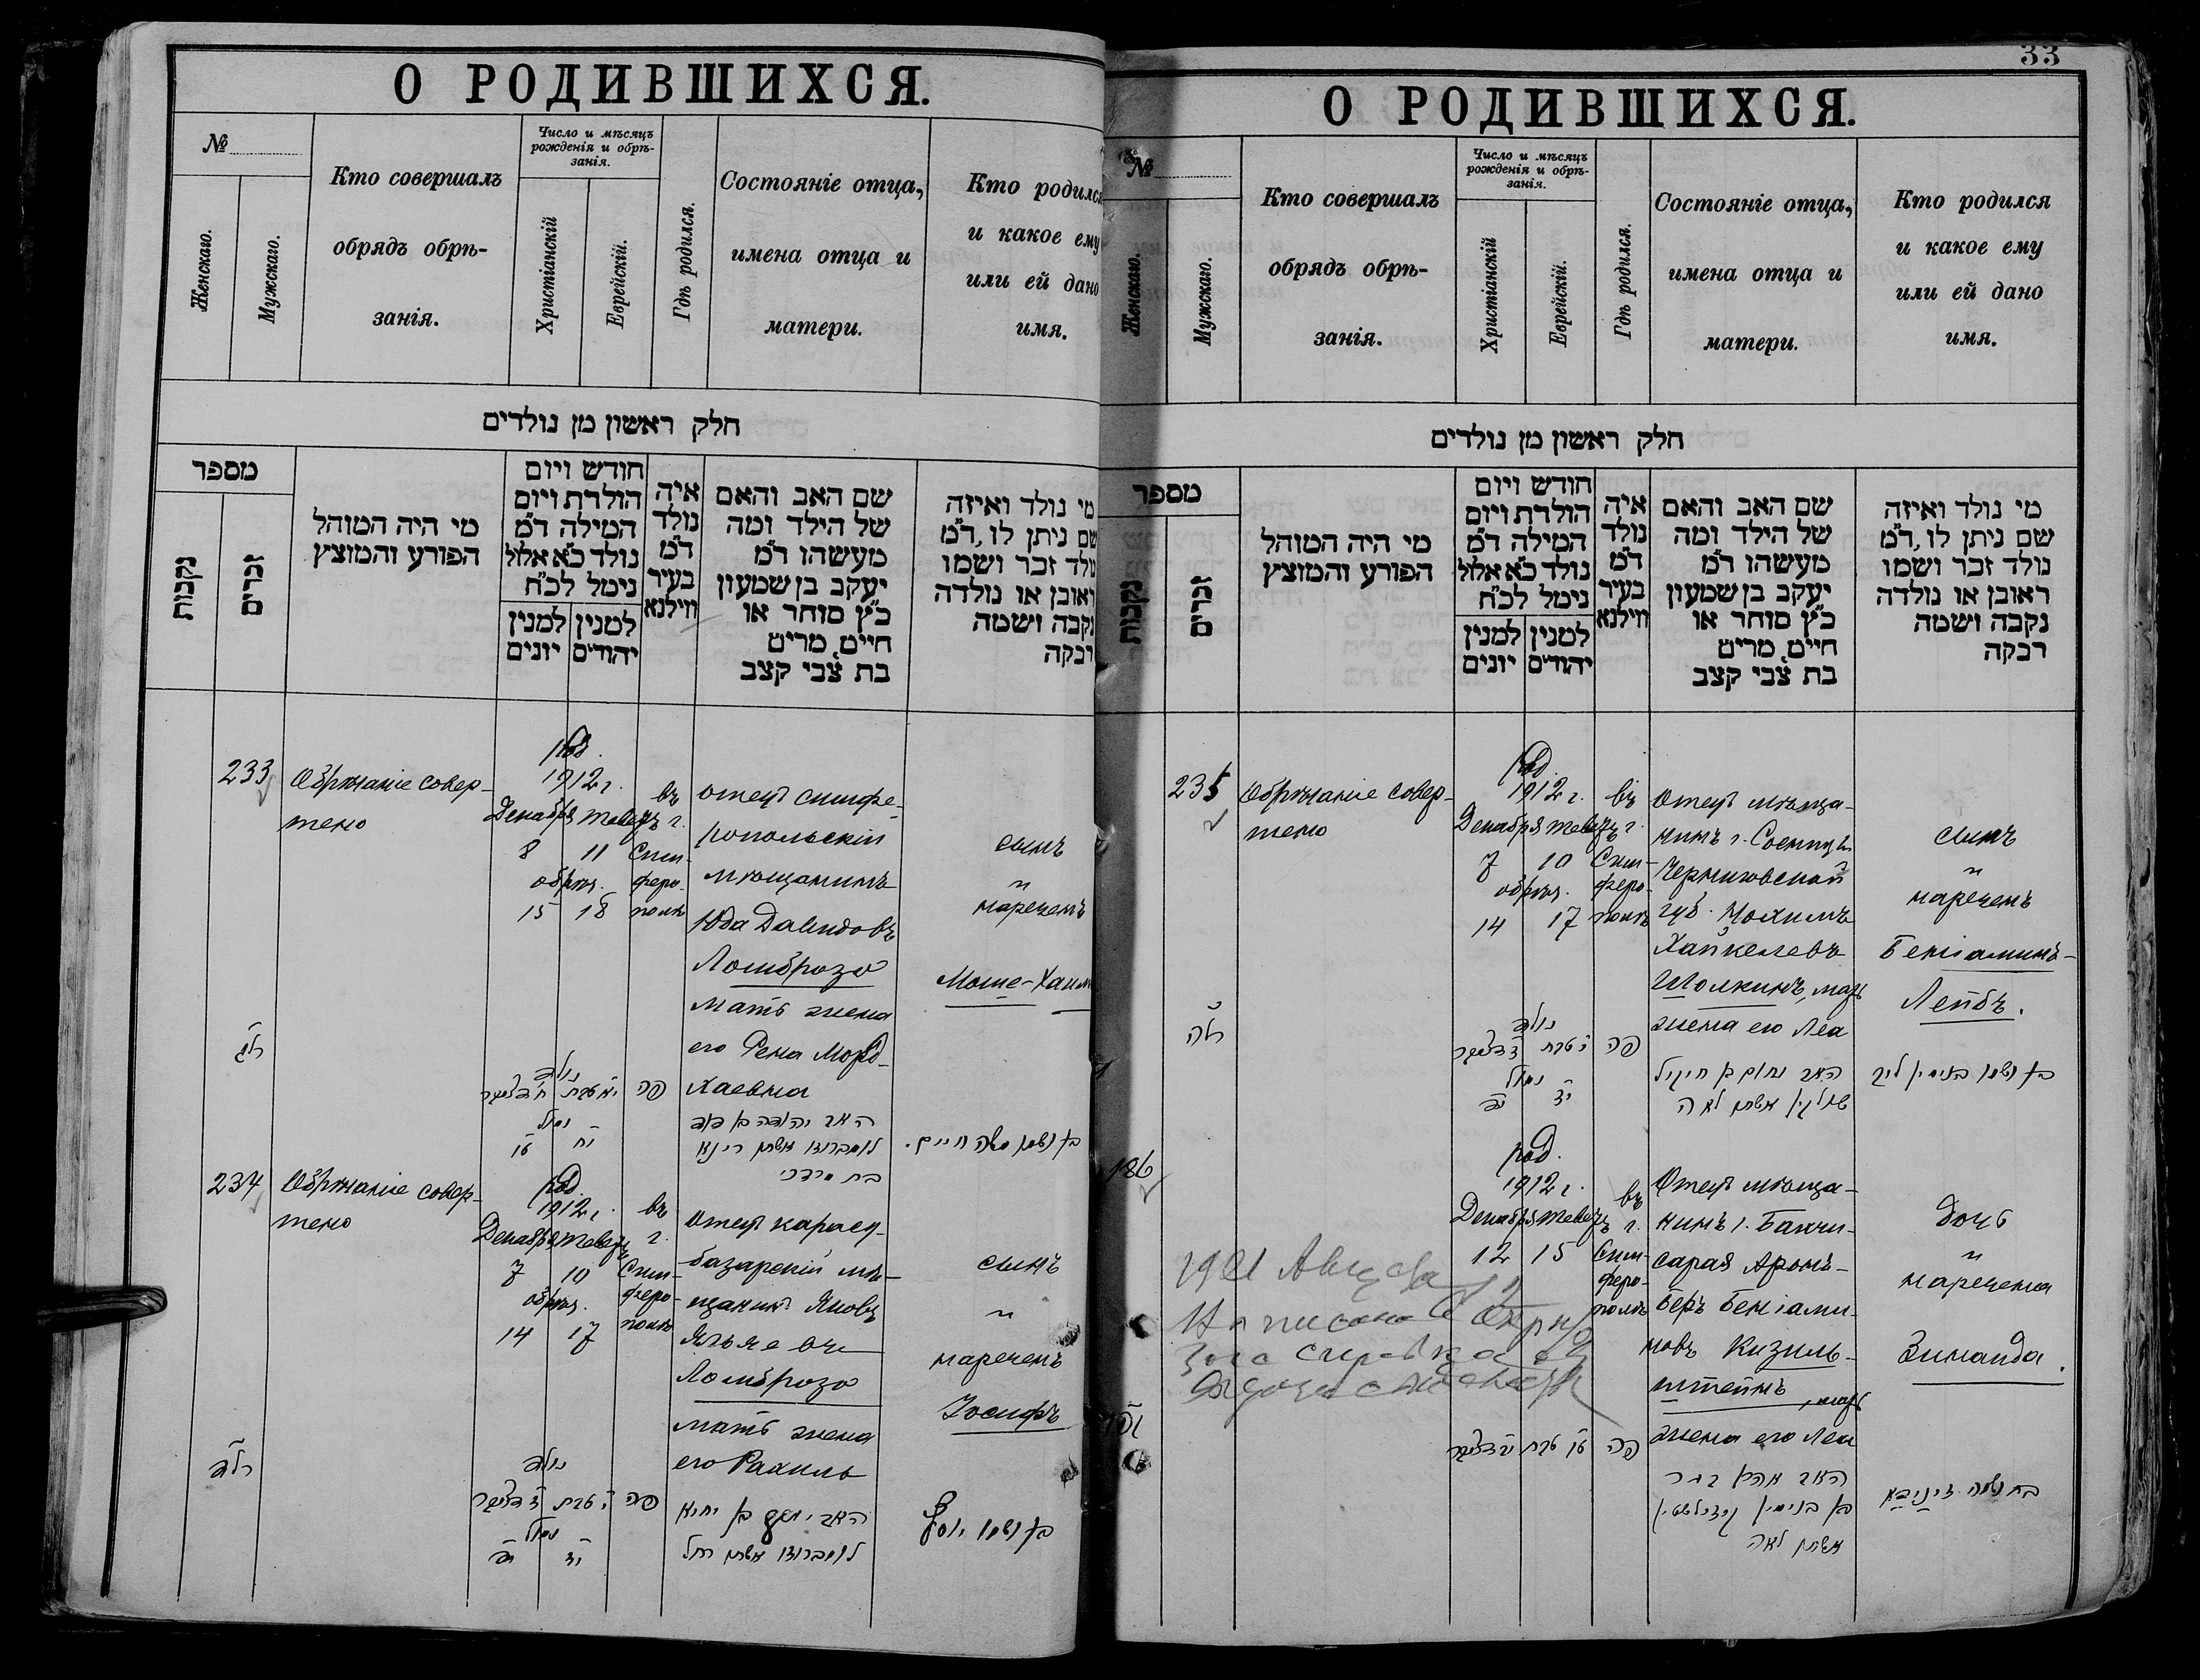 О РОДИВШИХСЯ.
№
Женскаго.
Мужскаго.
Кто совершалъ
обрядъ обрѣ-
занія.
Число и мѣсяцъ
рожденія и обрѣ-
занія.
Христіанскій
Еврейскій.
Гдѣ родился.
Состояніе отца,
имена отца и
матери.
Кто родился
и какое ему
или ей дано
имя.
חלק ראשון מן נולדים
מספר
נקבות
זכרים
מי היה המוהל
הפורע והמוצץ
חודש ויום
הולדת ויום
המילה ד״מ
נולד כ״א אלול
נימל לכ״ח
למנין יהודים
למנין יונים
איה
נולד
ד״מ
בעיר
ווילנא
שם האב והאם
של הילד ומה
מעשהו ד״מ
יעקב בן שמעון
כ״ץ סוחר או
חייט, מרים
בת צבי קצב
מי נולד ואיזה
שם ניתן לו, ד״מ
נולד זכר ושמו
ראובן או נולדה
נקבה ושמה
רבקה
233
Обрѣзаніе совер-
шено
род.
1912 г.
Декабря Тевезъ
8 11
обрѣз.
15 18
въ
г.
Сим-
феро-
полѣ
отецъ симфе-
ропольскій
мѣщанинъ
Юда Давидовъ
Ломброзо
мать жена
его Рена Мордо-
хаевна
сынъ
"
нареченъ
Моше-Хаим
רלג
נולד
פה
נימול
יח טו
האב יהודה בן דוד
לומברוזו אשתו רינא
בת מרדכי
בן ושמו משה חיים.
234
Обрѣзаніе совер-
шено
род.
1912 г.
Декабря Тевезъ
7 10
обрѣз.
14 17
въ
г.
Сим-
феро-
полѣ
отецъ карасу-
базарскій мѣ-
щанинъ Яковъ
Ломброзо
мать жена
его Рахиль
сынъ
"
нареченъ
Іосифъ
רלד
נולד
פה
נימול
לומברוזו אשתו רחל
בן ושמו יוסף
33
О РОДИВШИХСЯ.
№
Женскаго.
Мужскаго.
Кто совершалъ
обрядъ обрѣ-
занія.
Число и мѣсяцъ
рожденія и обрѣ-
занія.
Христіанскій
Еврейскій.
Гдѣ родился.
Состояніе отца,
имена отца и
матери.
Кто родился
и какое ему
или ей дано
имя.
חלק ראשון מן נולדים
מספר
נקבות
זכרים
מי היה המוהל
הפורע והמוצץ
חודש ויום
הולדת ויום
המילה ד״מ
נולד כ״א אלול
נימל לכ״ח
למנין יהודים
למנין יונים
איה
נולד
ד״מ
בעיר
ווילנא
שם האב והאם
של הילד ומה
מעשהו ד״מ
יעקב בן שמעון
כ״ץ סוחר או
חייט, מרים
בת צבי קצב
מי נולד ואיזה
שם ניתן לו, ד״מ
נולד זכר ושמו
ראובן או נולדה
נקבה ושמה
רבקה
235
Обрѣзаніе совер-
шено
род.
1912 г.
Декабря Тевезъ
7 10
обрѣз.
14 17
въ
г.
Сим-
феро-
полѣ
Отецъ мѣща-
нинъ г. Сосницы
Черниговской
губ. Нохимъ
Хайкелевъ
Шолкинъ, мать
жена его Леа
сынъ
"
нареченъ
Беніаминъ-
Лейбъ.
רלה
נולד
פה
נימול
האב נחום בן חייקיל
שולקין אשתו לאה
בן ושמו בנימין ליב
186
род.
1912 г.
Декабря Тевезъ
12 15
въ
г.
Сим-
феро-
полѣ
Отецъ мѣща-
нинъ г. Бахчи-
сарая Аронъ-
Беръ Беніами-
новъ Кизиль-
штейнъ, мать
жена его Леа
дочь
"
наречена
Зинаида.
1921 Августа
קפו
פה
האב אהרן בער
בן בנימין קיזילשטיין
אשתו לאה
בת ושמה זינאידא